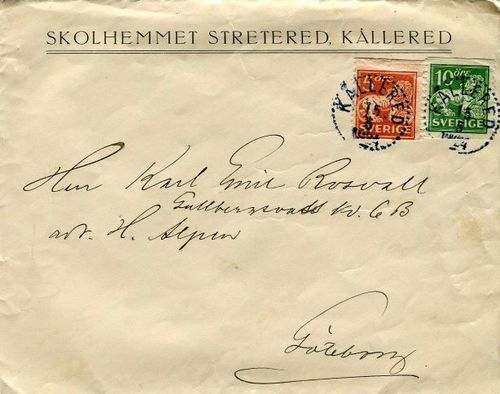 SKOLHEMMET STRETERED, KÅLLERED
5 ÖRE
SVERIGE
10 ÖRE
SVERIGE
KÅLLERED
KÅLLERED
24
Herr Karl Emil Rosvall
Gullbergsvass Kv. 6 B
adr. H. Alpen
Göteborg